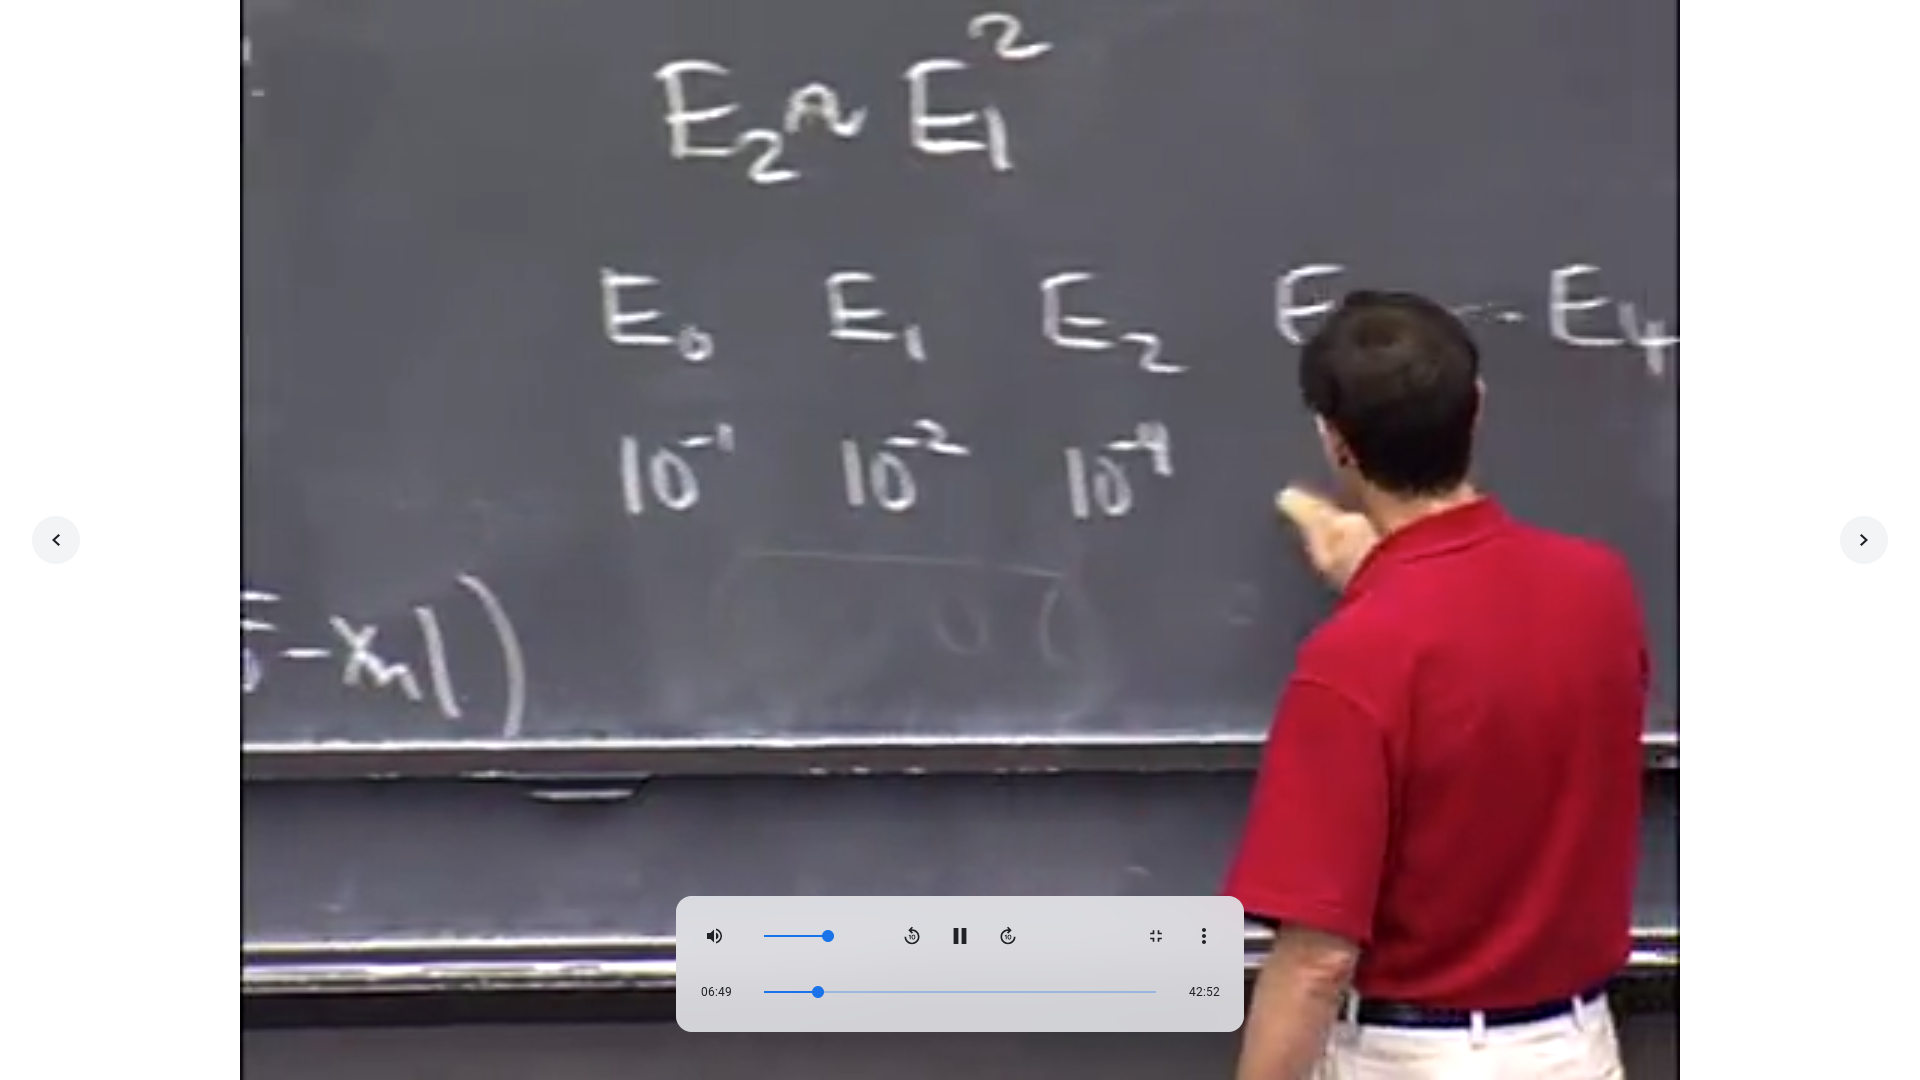 E₂ ~ E₁²
E₀ E₁ E₂ E E₄
10⁻¹ 10⁻² 10⁻⁴
- xₙ|)
10 10
06:49 42:52